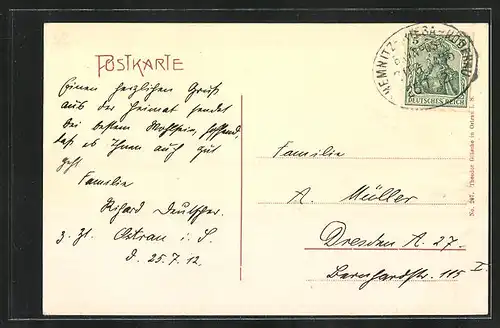 POSTKARTE
Einen herzlichen Gruß
aus der Heimat sendet
bei bestem Wohlsein, hoffend,
daß es Ihnen auch gut
geht
Familie
Rihard Deutscher.
z. Zt. Ostrau i. S.
d. 25.7.12.
CHEMNITZ-RIESA-
DEUTSCHES REICH
Familie
A. Müller
Dresden A. 27.
Bernhardstr. 115 I.
No. 267. Theodor in Ostrau i. S.